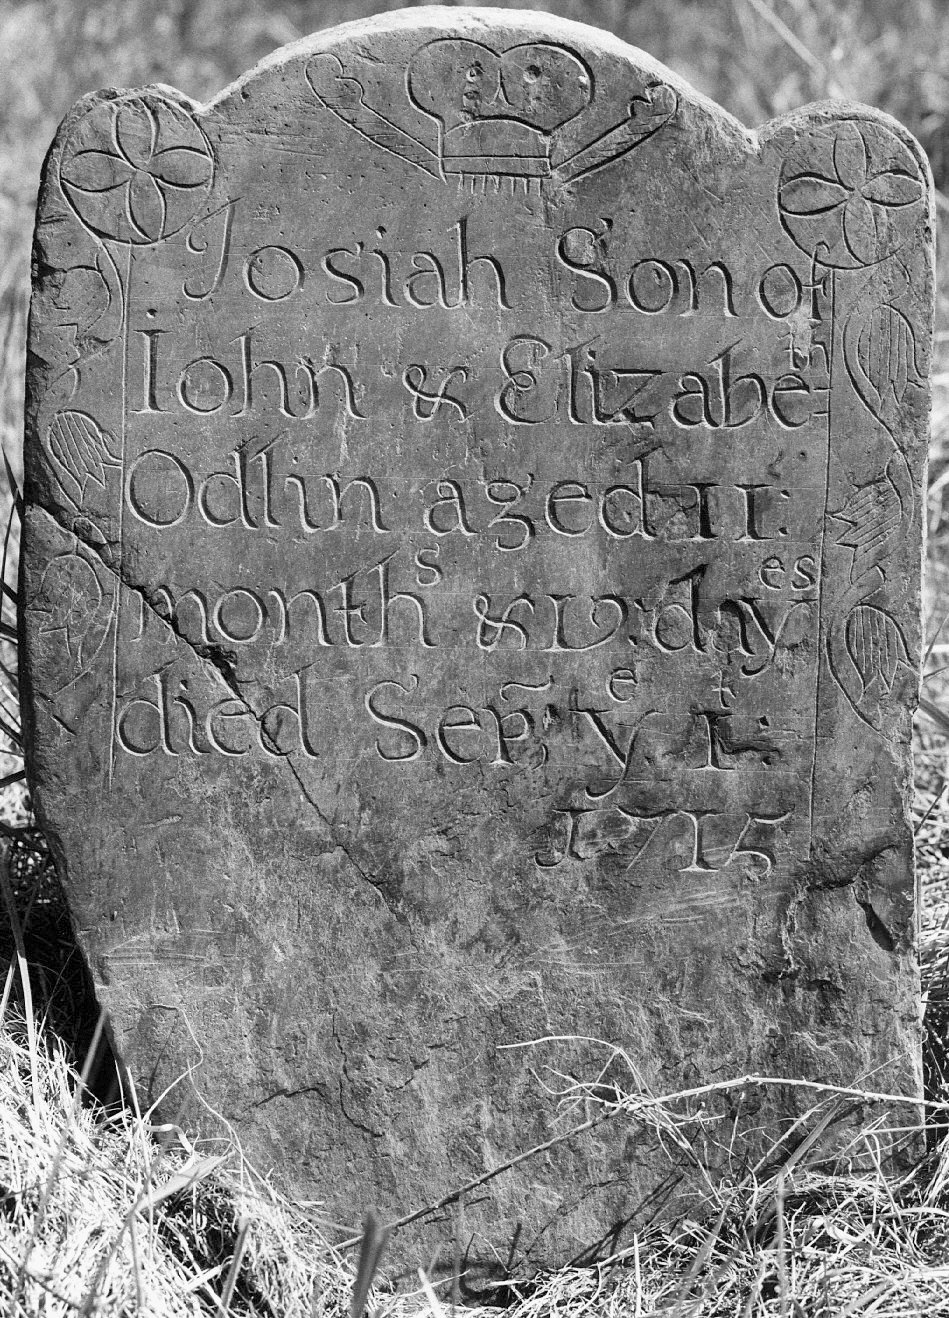 Josiah Son of
Iohn & Elizabeth
Odlin aged II:
monthˢ & 10 dayᵉˢ
died Sep̄: yᵉ Iᵗ:
1715